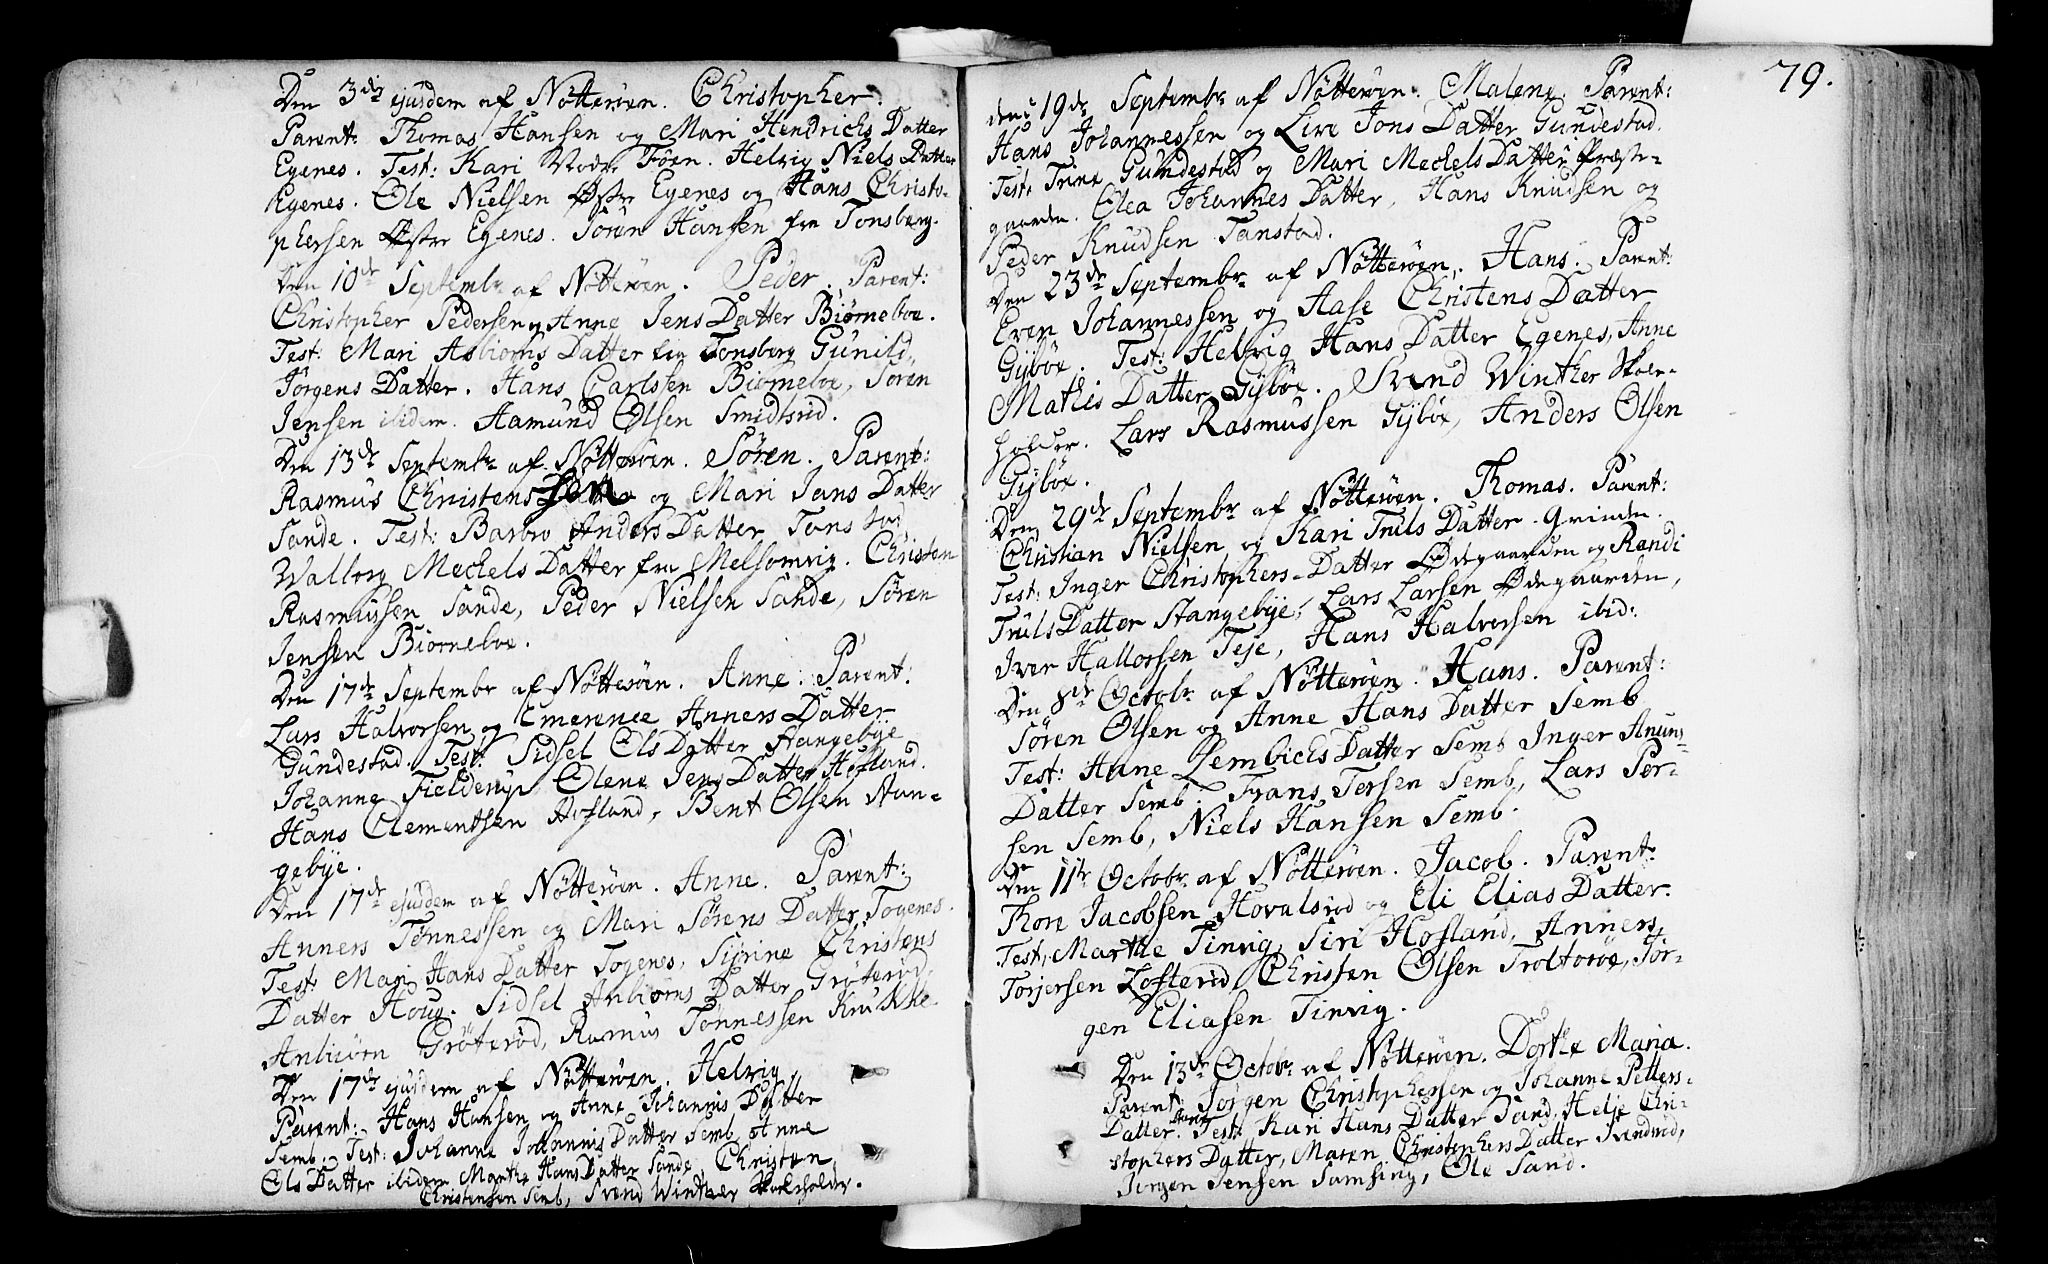 Den 3de ejusdem af Nötteröen. Christopher.
Parent: Thomas Hansen og Mari Hendrichs Datter
Egenes. Test: Kari Föen. Helvig Niels Datter
Egenes. Ole Nielsen Østre Egenes og Hans Christo-
phersen Østre Egenes. Sören Hansen fra Tonsberg.
Den 10de Septembr af Nötteröen. Peder. Parent:
Christopher Pedersen og Anne Jens Datter Biörneboe.
Test: Mari Asbiörns Datter fra Tonsberg Gunild
Jörgens Datter. Hans Carlsen Biörneboe, Sören
Jensen ibidem. Aamund Olsen Smidtsröd.
Den 13de Septembr af Nötteröen. Sören. Parent:
Rasmus Christensen og Mari Jans Datter
Sande. Test: Barbro Anders Datter Tanstad
Walborg Mechels Datter fra Melsomvig. Christen
Rasmussen Sande, Peder Nielsen Sande, Sören
Jensen Biörneboe.
Den 17de Septembr af Nötteröen. Anne. Parent:
Lars Halvorsen og Emerence Anners Datter
Gundestad. Test: Sidsel Ols Datter Stangebÿe
Johanne Fielderup Olene Jens Datter Hofland.
Hans Clementsen Hofland, Bent Olsen Stan-
gebÿe.
Den 17de ejusdem af Nötteröen. Anne. Parent:
Anners Tönnessen og Mari Sörens Datter Togenes.
Test: Mari Hans Datter Togenes, Sÿrine Christens
Datter Houg. Sidsel Anbiörns Datter Gröteröd,
Anbiörn Gröteröd, Rasmus Tönnessen Krukke.
Den 17de ejusdem af Nötteröen. Helvig.
Parent: Hans Hansen og Anne Johannis Datter
Semb. Test: Johanne Johannis Datter Semb, Anne
Ols Datter ibidem Marthe Hans Datter Sande. Christen
Christensen Semb, Svend Winther Skoleholder.
79.
den 19de Septembr af Nötteröen. Malene. Parent:
Hans Johannessen og Live Jons Datter Gundestad.
Test. Trine Gundestad og Mari Mechels Datter Præste-
gaarden. Olea Johannes Datter, Hans Knudsen og
Peder Knudsen Tanstad.
Den 23de Septembr af Nötteröen. Hans. Parent:
Even Johannessen og Aase Christens Datter
Gÿböe. Test: Helvig Hans Datter Egenes, Anne
Mathis Datter Gÿböe. Svend Winther Skoer-
holder. Lars Rasmussen Gÿböe, Anders Olsen
Gÿböe.
Den 29de Septembr af Nötteröen. Thomas. Parent:
Christian Nielsen og Kari Truls Datter Grinden.
Test: Inger Christophers-Datter Ødegaarden og Randi
Truls Datter Stangebÿe, Lars Larsen Ødegaarden,
Iver Hallorssen Teje, Hans Halvorsen ibid:
Den 8de Octobr af Nötteröen. Hans. Parent:
Sören Olsen og Anne Hans Datter Semb
Test: Anne Lembichs Datter Semb Inger Anuns-
Datter Semb. Frans Tersen Semb, Lars Per-
sen Semb, Niels Hansen Semb.
Den 11te Octobr af Nötteröen. Jacob. Parent:
Thore Jacobsen Hovalsröd og Eli Elias Datter.
Test, Marthe Tinvig, Siri Hofland, Anners
Torjersen Lofteröd, Christen Olsen Troltoröe, Jör-
gen Eliasen Tinvig.
Den 13de Octobr af Nötteröen. Dorthe Maria.
Parent: Jörgen Christophersen og Johanne Petters-
Datter. Sand. Test: Kari Hans Datter Sand, Helje Chri-
stophers Datter, Maren Christophers Datter Svendröd,
Jörgen Jensen Samsing, Ole Sand.